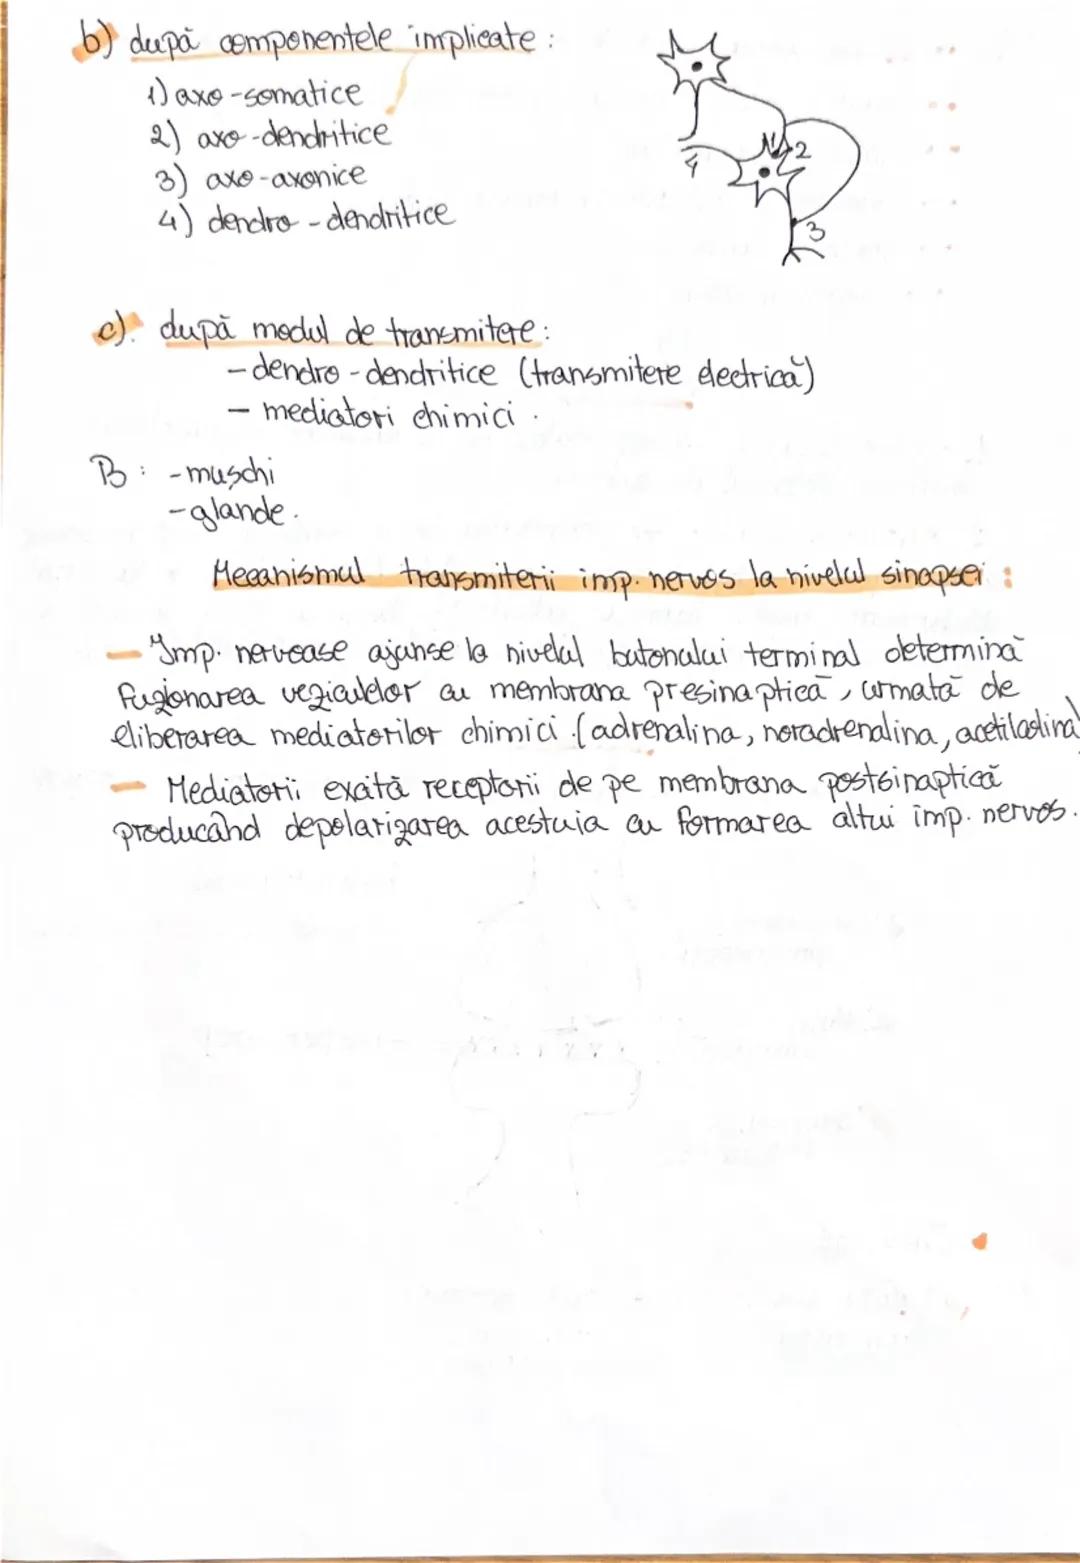 b) după componentele implicate :
1) axo-somatice
2) axo-dendritice
3) axo-axonice
4) dendro-dendritice
1
2
4
3
c). după modul de transmitere :
- dendro-dendritice (transmitere electrică)
- mediatori chimici .
B : - muşchi
- glande .
Mecanismul transmiterii imp. nervos la nivelul sinapsei :
- Imp. nervoase ajunse la nivelul butonului terminal determină
fuzionarea veziculelor cu membrana presinaptică, urmată de
eliberarea mediatorilor chimici . (adrenalina, noradrenalina, acetilcolina)
- Mediatorii exaită receptorii de pe membrana postsinaptică
producând depolarizarea acestuia cu formarea altui imp. nervos.